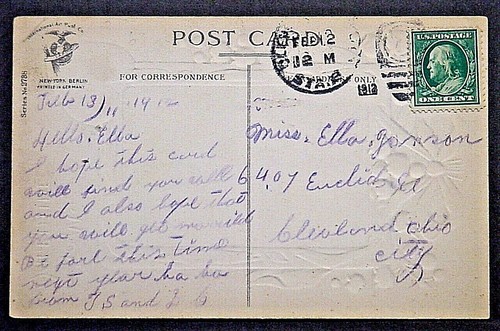 POST CARD
International Art Publ. Co.
NEW YORK BERLIN
PRINTED IN GERMANY
Series No. 2786
FOR CORRESPONDENCE
ONLY
FEB 12
12 M
STA.
1912
U.S. POSTAGE
ONE CENT
Feb 13/11 - 191-
Hello. Ella
I hope this card
will find you well
and I also hope that
you will get married
be fort this time
next year ha ha
from J S and
Miss. Ella. Jonson
6407 Euclid
Cleveland Ohio
city